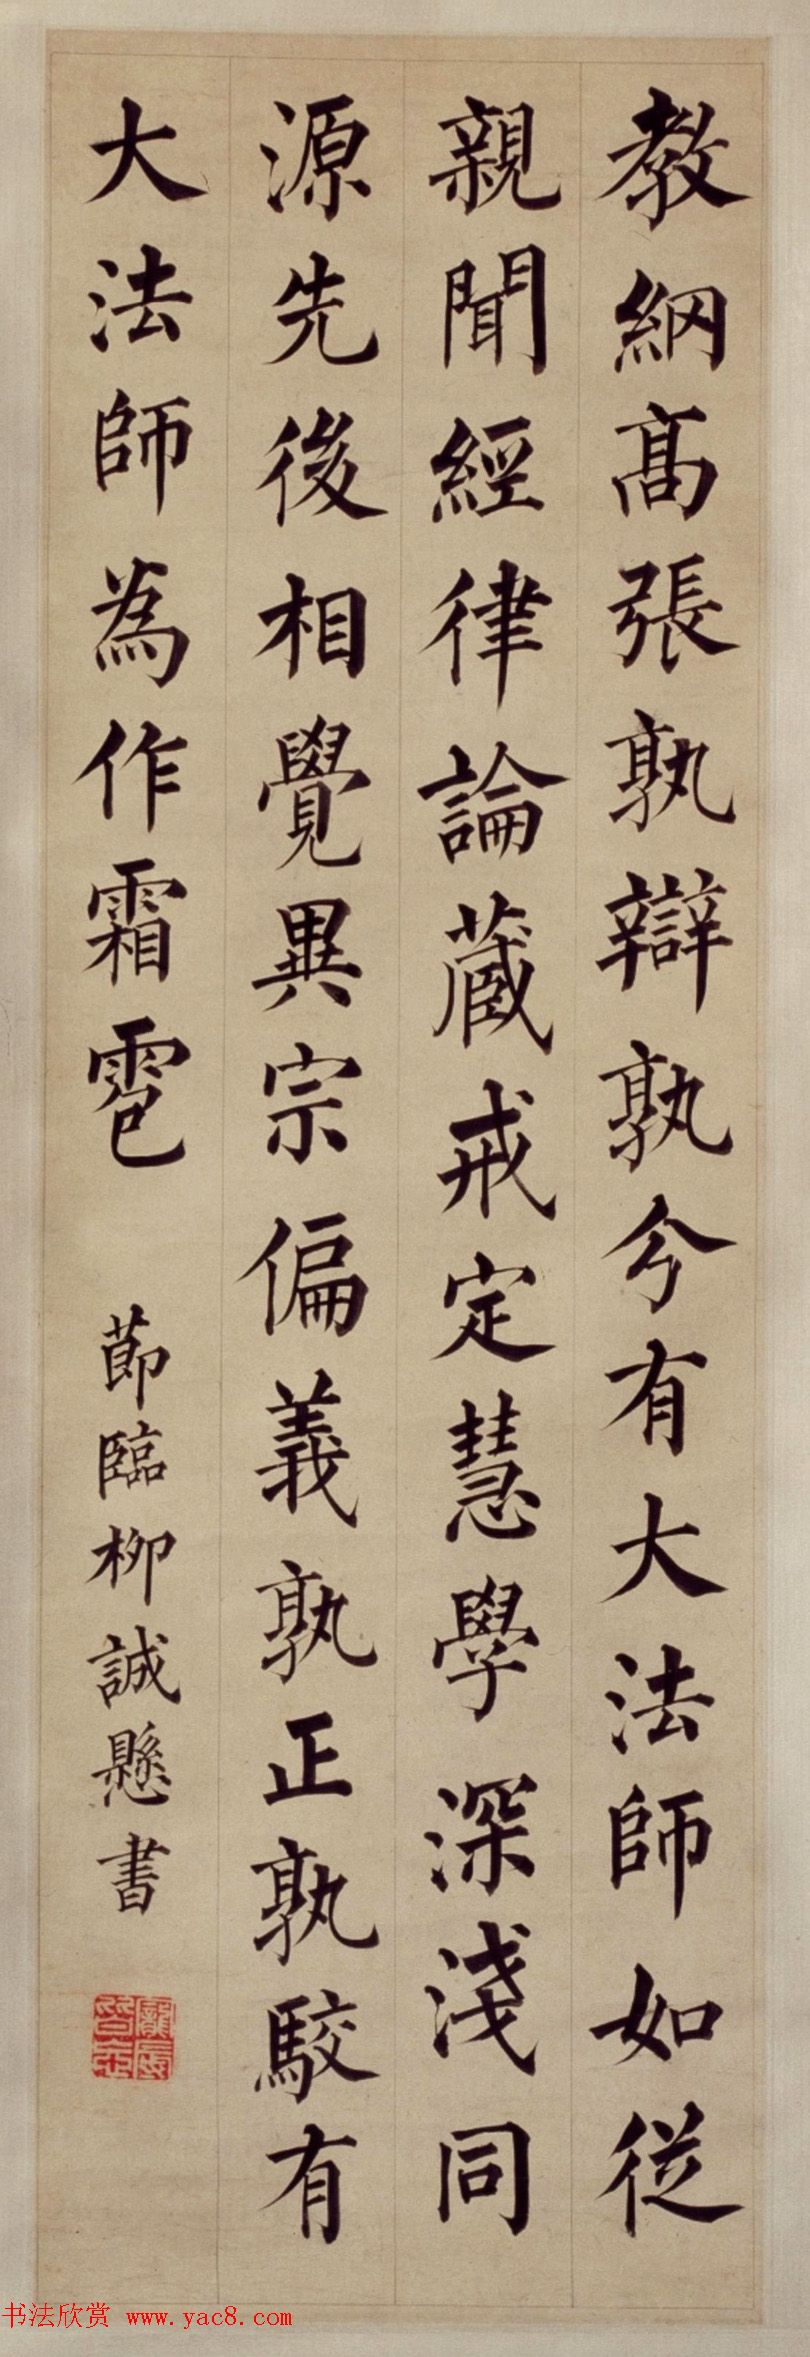 教綱髙張孰辯孰分有大法師如從
親聞經律論藏戒定慧學深淺同
源先後相覺異宗偏義孰正孰駮有
大法師為作霜雹
節臨柳誠懸書
书法欣赏 www.yac8.com